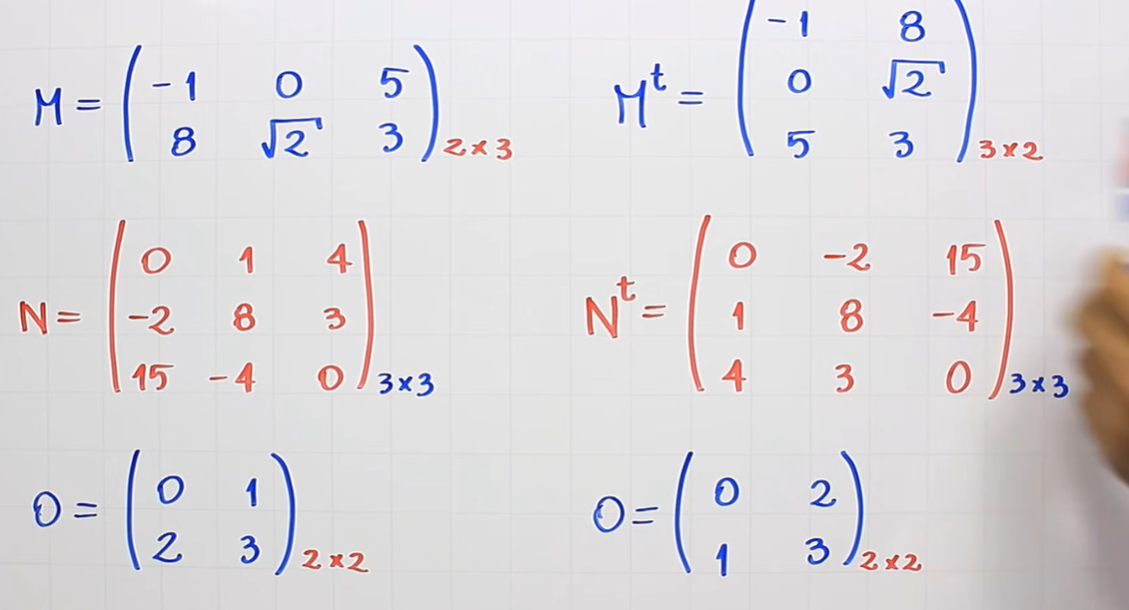 M = ( -1 0 5
8 √2 3 ) 2×3
Mᵗ = ( -1 8
0 √2
5 3 ) 3×2
N = ( 0 1 4
-2 8 3
15 -4 0 ) 3×3
Nᵗ = ( 0 -2 15
1 8 -4
4 3 0 ) 3×3
O = ( 0 1
2 3 ) 2×2
O = ( 0 2
1 3 ) 2×2